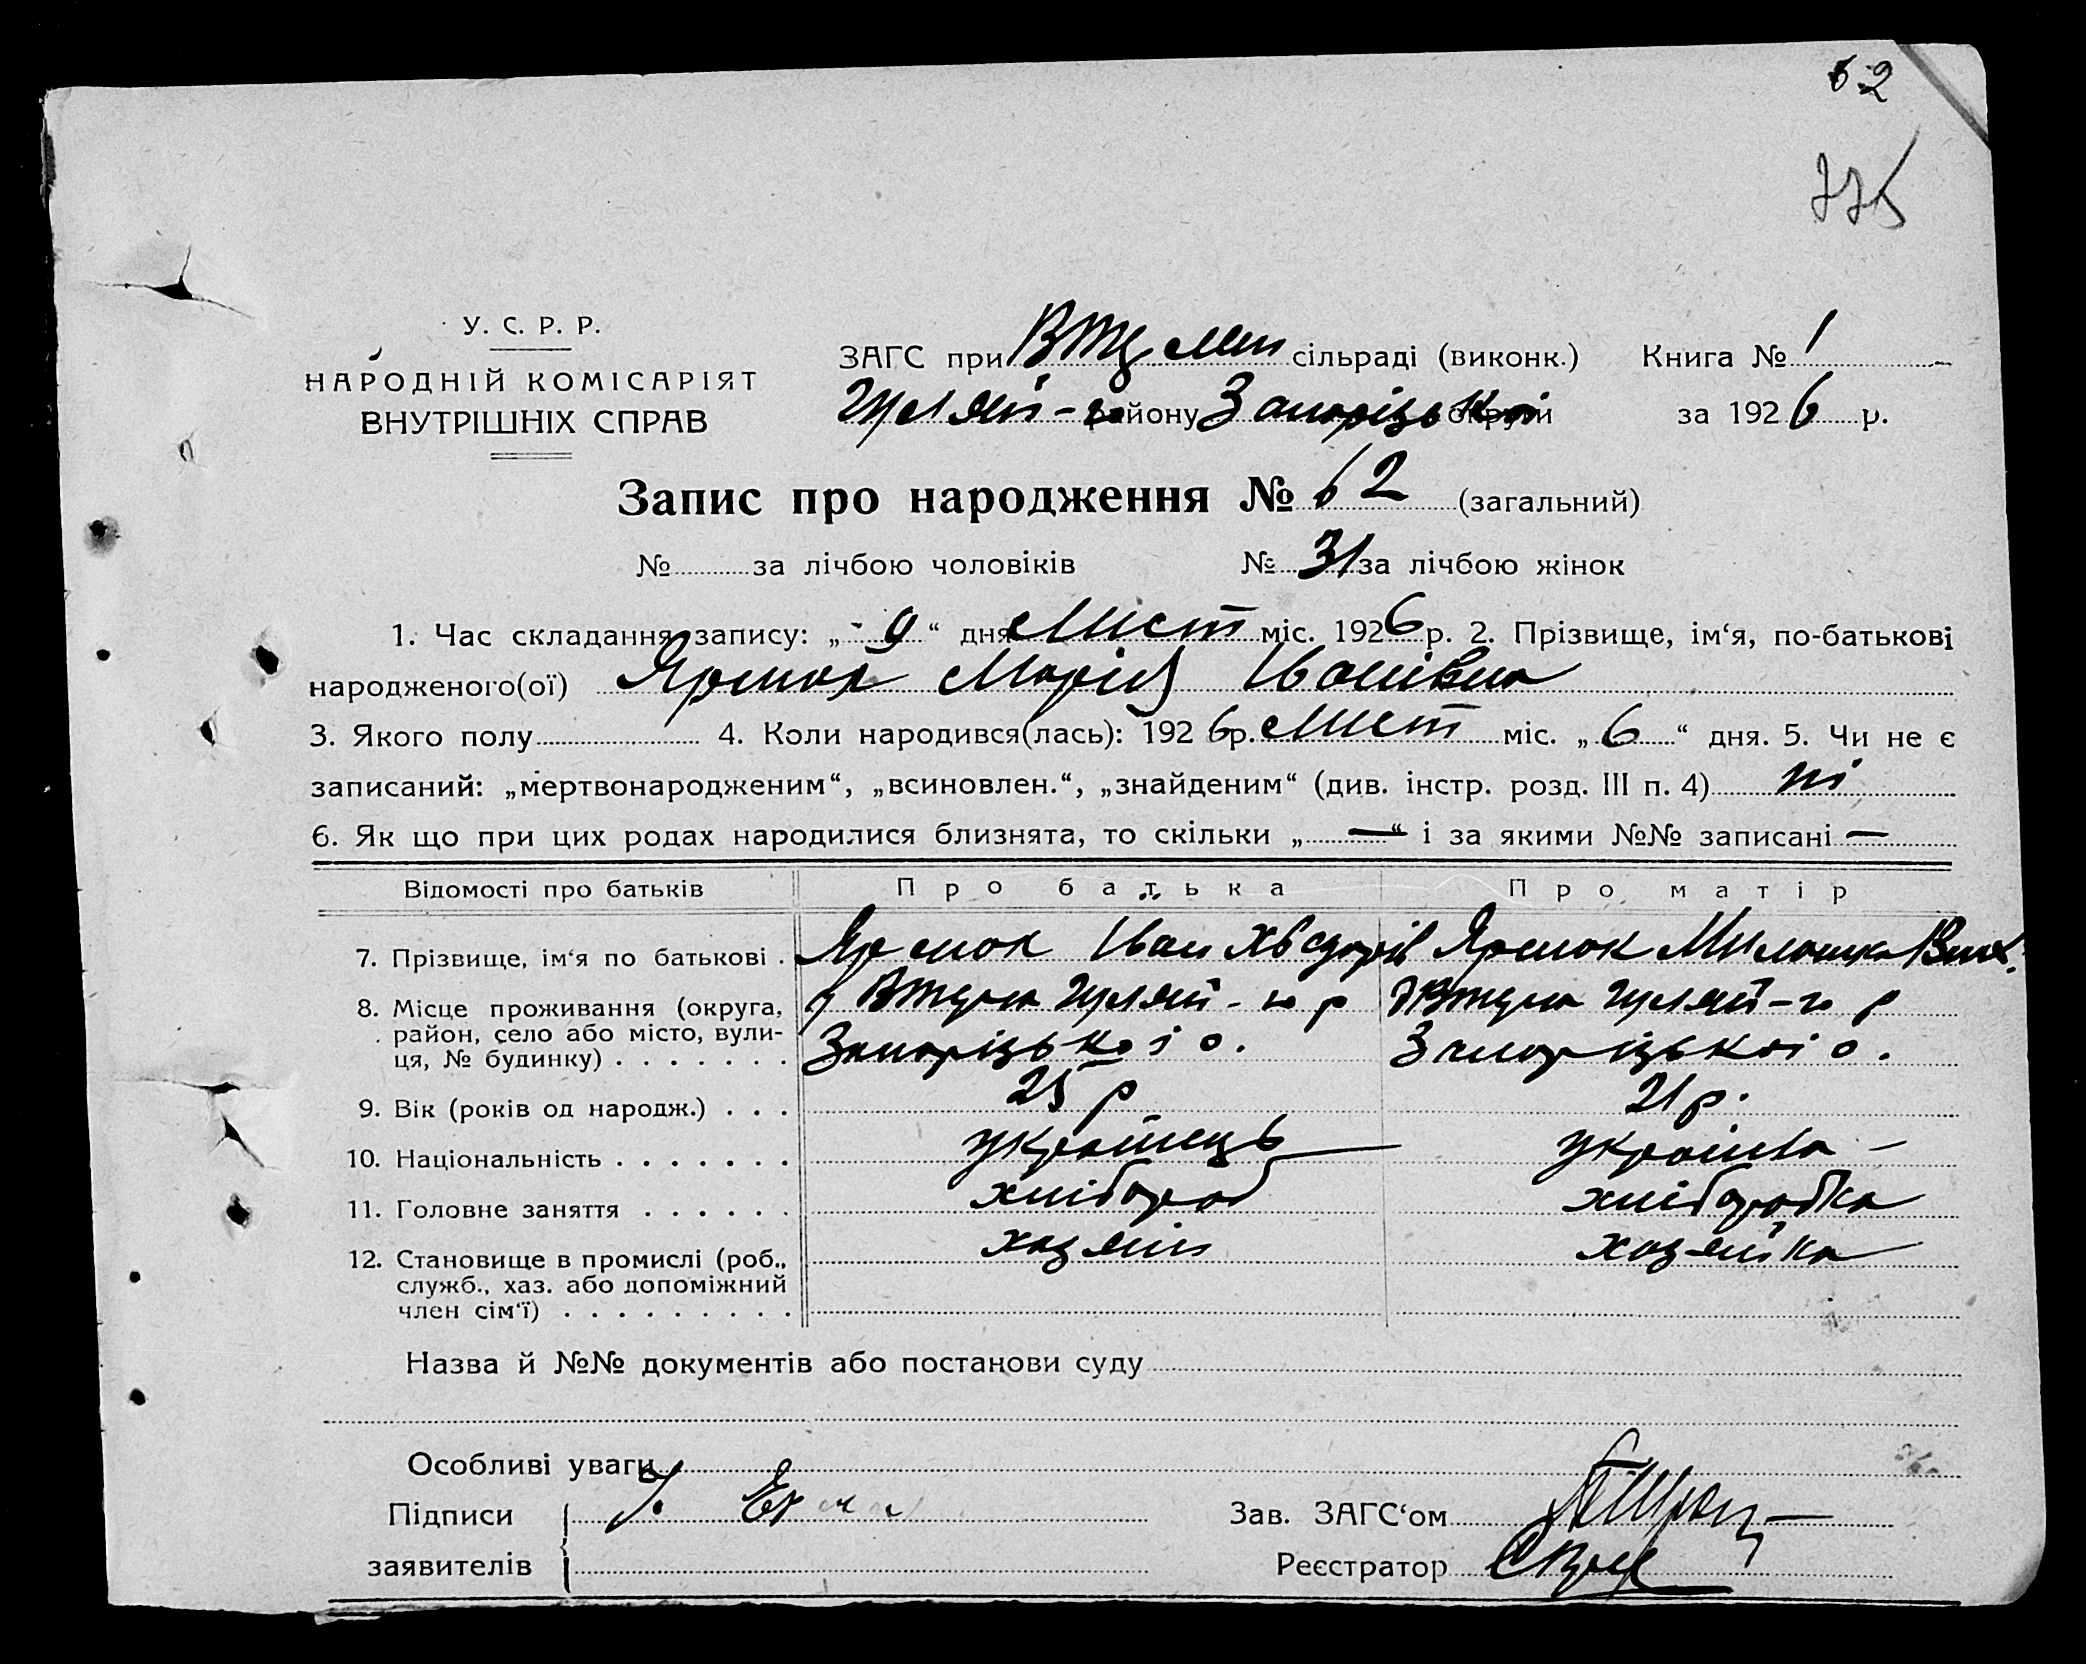 62
У. С. Р. Р.
НАРОДНІЙ КОМІСАРІЯТ
ВНУТРІШНІХ СПРАВ
ЗАГС при сільраді (виконк.) Книга № 1
Гуляй - району Запоріцької округи за 1926 р.
Запис про народження № 62 (загальний)
№ за лічбою чоловіків № 31 за лічбою жінок
1. Час складання запису: „ 9 “ дня Лист міс. 1926 р. 2. Прізвище, ім‘я, по-батькові
народженого(ої) Ярмак Марія Іванівна
3. Якого полу 4. Коли народився(лась): 1926 р. Лист міс. „ 6 “ дня. 5. Чи не є
записаний: „мертвонародженим“, „всиновлен.“, „знайденим“ (див. інстр. розд. III п. 4) ні
6. Як що при цих родах народилися близнята, то скільки „ — “ і за якими №№ записані —
Відомості про батьків Про батька Про матір
7. Прізвище, ім‘я по батькові . Ярмак Іван Ярмак
8. Місце проживання (округа, Гуляй - го р Гуляй - го р
район, село або місто, вули- Запоріцької о. Запоріцької о.
ця, № будинку) . . . . . . .
9. Вік (років од народж.) . . . 25 р 21 р.
10. Національність . . . . . . . українець — українка —
11. Головне заняття . . . . . . хлібороб хліборобка
12. Становище в промислі (роб., хазяїн хазяйка
служб., хаз. або допоміжний
член сім‘ї) . . . . . . . . .
Назва й №№ документів або постанови суду
Особливі уваги
Підписи
Зав. ЗАГС‘ом
заявителів
Реєстратор